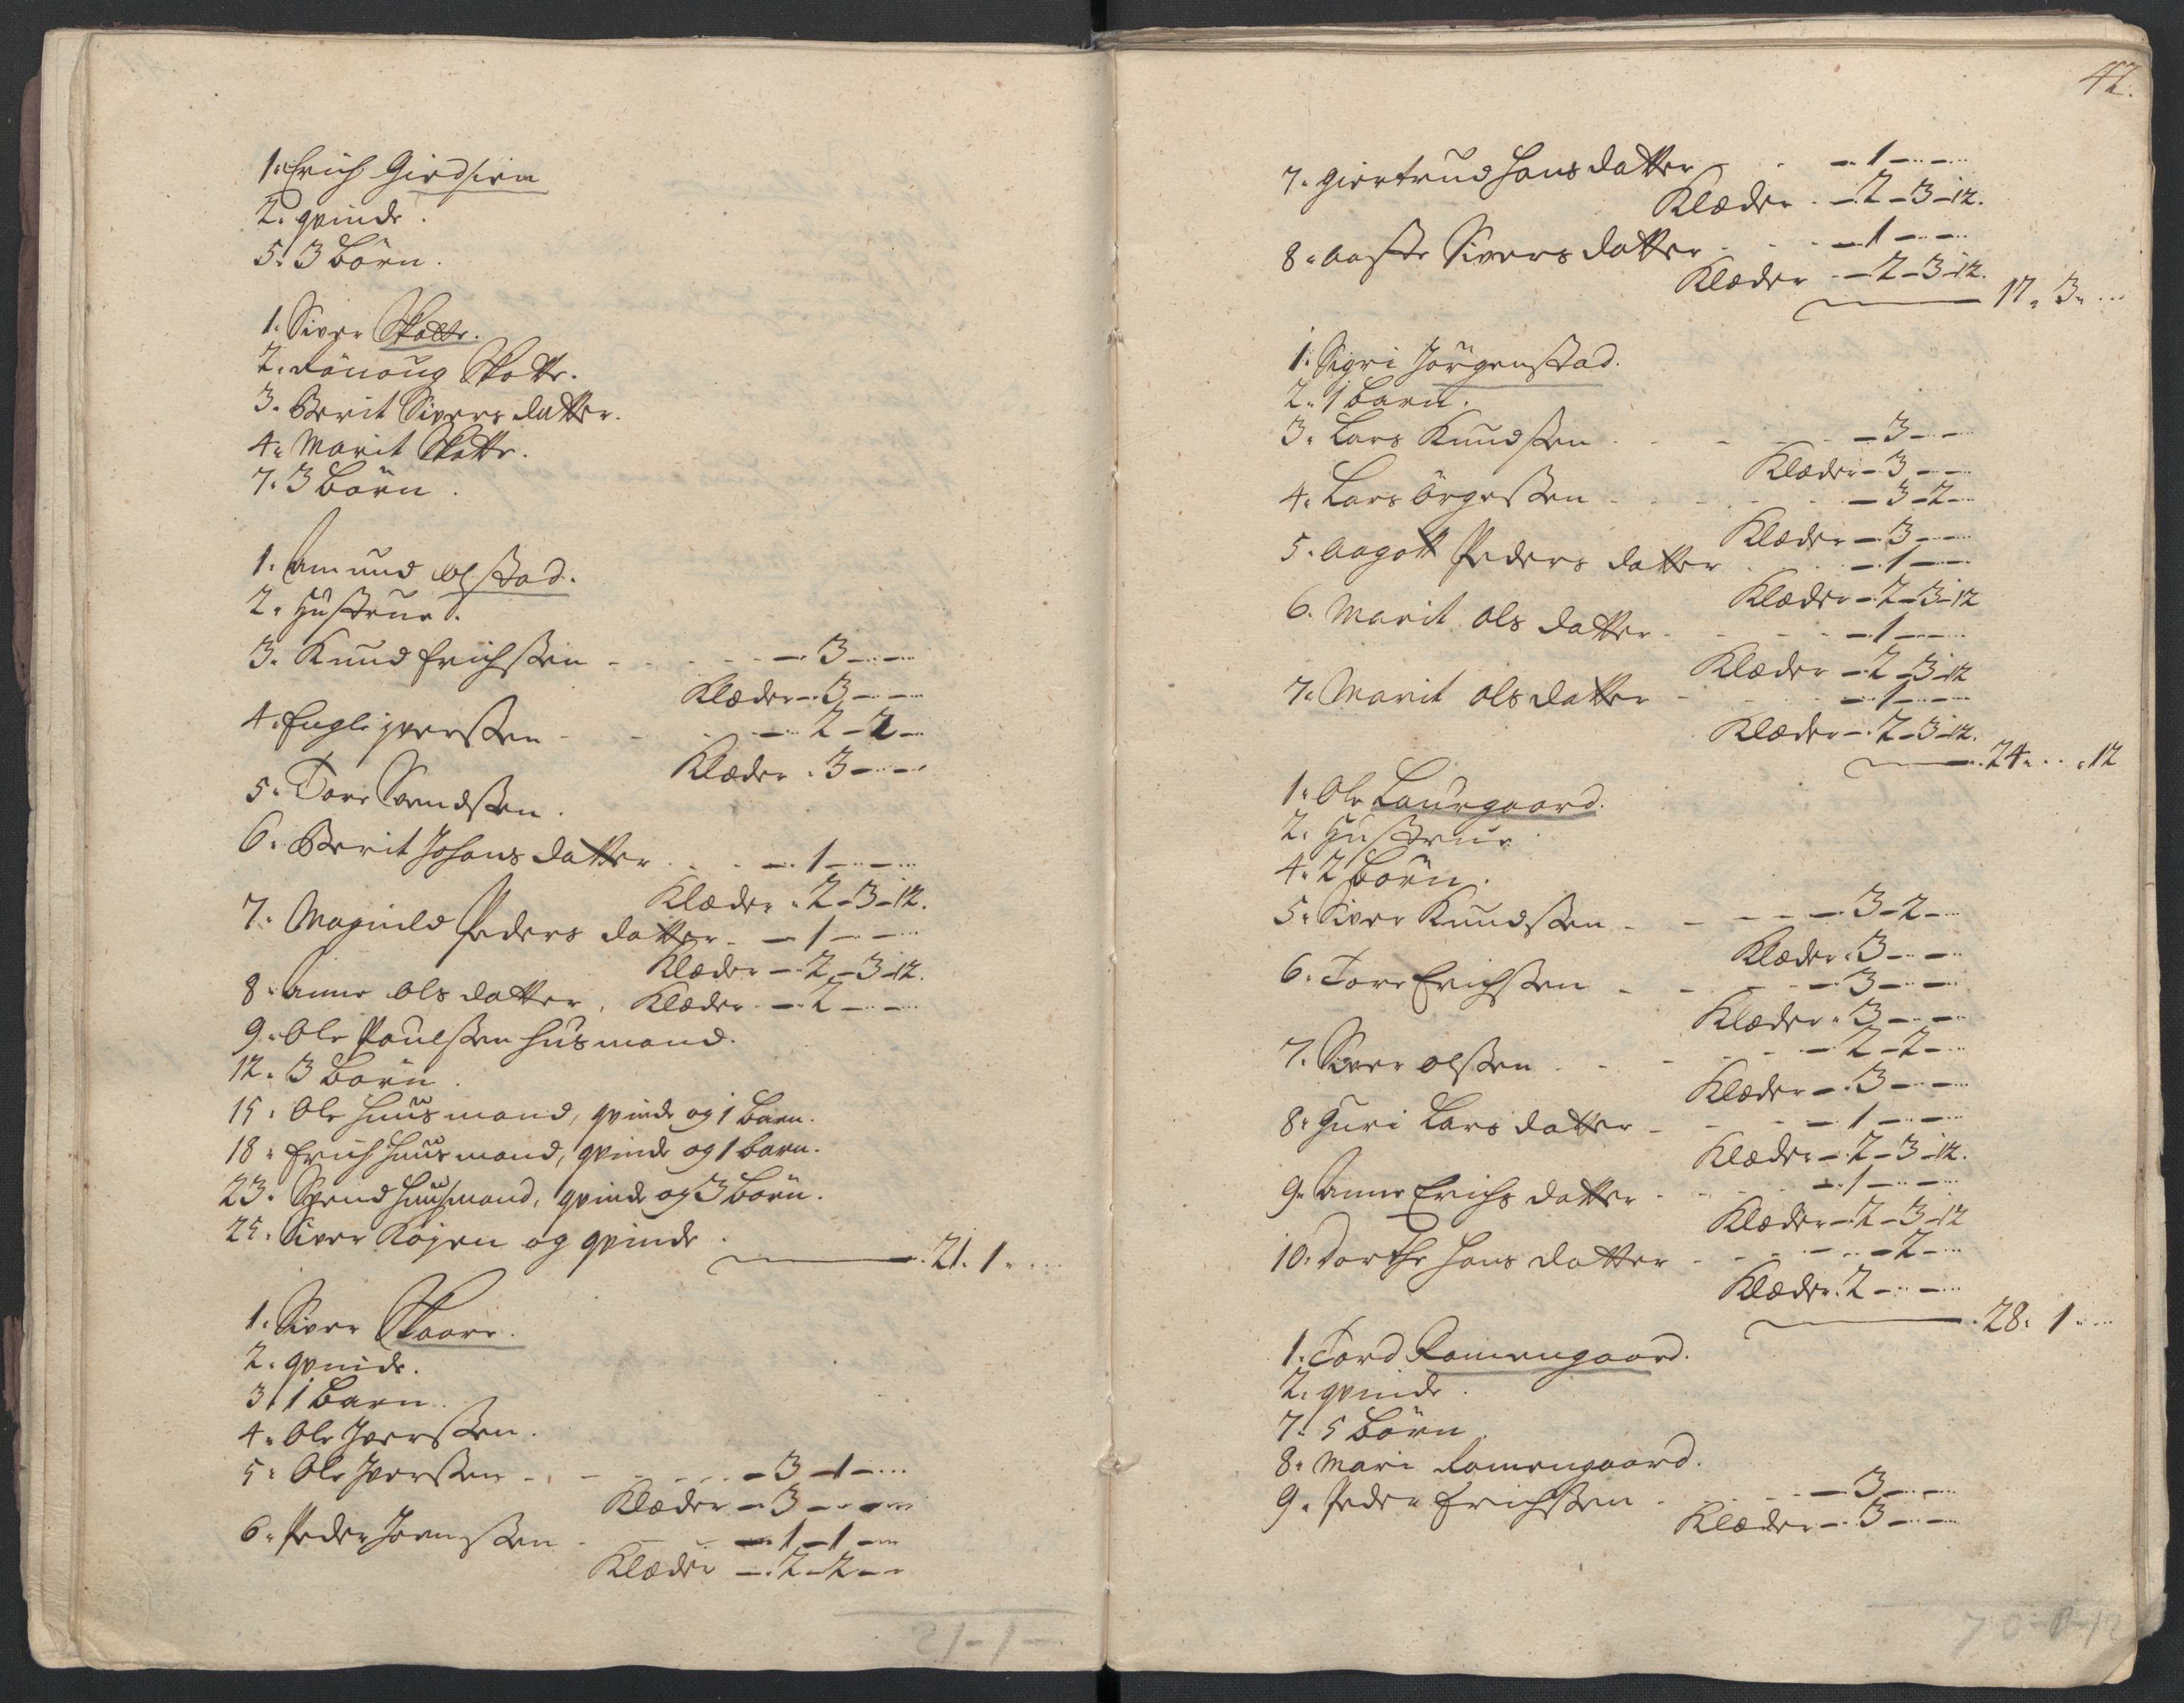 1. Erich Giedsien
2. qvinde.
5. 3 Börn.
1. Siver Skotte.
2. Rönoug Skotte.
3. Berit Sivers datter.
4. Marit Skotte.
7. 3 Börn.
1. Amund Olstad.
2. Hustrue.
3. Knud Erichssen - - - 3 - -
Klæder - 3 - -
4. Engli Iverssen - - - 2 - 2 -
Klæder . 3 - -
5. Tore Svendssen.
6. Berit Johans datter - - 1 - -
Klæder . 2 - 3 - 12.
7. Magnild Peders datter - - 1 - -
Klæder - 2 - 3 - 12.
8. Anne Ols datter. Klæder - 2 - -
9. Ole Poulssen Husmand.
12. 3 Börn.
15. Ole Huusmand, qvinde og 1 Barn.
18. Erich Huusmand, qvinde og 1 barn.
23. Svend Huusmand, qvinde og 3 Börn.
25. Siver Kojen og qvinde.
21. 1. ...
1. Siver Skaare.
2. qvinde.
3. 1 Barn.
4. Ole Iverssen.
5. Ole Iverssen - - - 3 - 1 - ...
Klæder - 3 - -
6. Peder Joenssen - - 1 - 1 -
Klæder - 2 - 2 - -
21 - 1 -
42.
7. Giertrud Hans datter - - 1 - -
Klæder - 2 - 3 - 12.
8. Aaste Sivers datter - - 1 - -
Klæder - 2 - 3 - 12.
17. 3. ...
1. Sigri Jörgenstad.
2. 1 barn.
3. Lars Knudssen - - - 3 - -
Klæder - 3 - -
4. Lars Örgessen - - - 3 - 2 -
Klæder - 3 - -
5. Aagott Peders datter - - 1 - -
Klæder - 2 - 3 - 12
6. Marit Ols datter - - - 1 - -
Klæder - 2 - 3 - 12
7. Marit Ols datter - - 1 - -
Klæder - 2 - 3 - 12.
24. . . 12
1. Ole Laurgaard.
2. Hustrue.
4. 2 Börn.
5. Siver Knudssen - - - 3 - 2 -
Klæder . 3 - -
6. Tore Erichssen - - - 3 - -
Klæder . 3 - -
7. Siver Olssen - - - 2 - 2 -
Klæder - 3 - -
8. Guri Lars datter - - - 1 - -
Klæder - 2 - 3 - 12.
9. Anne Erichs datter - - 1 - -
Klæder - 2 - 3 - 12
10. Dorthe Hans datter - - - 2 -
Klæder . 2 - -
28. 1 . .
1. Tord Romengaard.
2. qvinde.
7. 5 Börn.
8. Mari Romengaard.
9. Peder Erichssen - - - 3 - -
Klæder - 3 - -
70 - 0 - 12